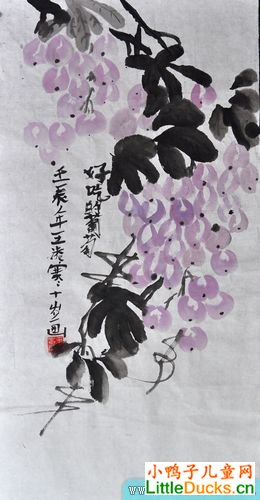 好吃的葡萄
壬辰年王寒十岁画
小鸭子儿童网
LittleDucks.cn